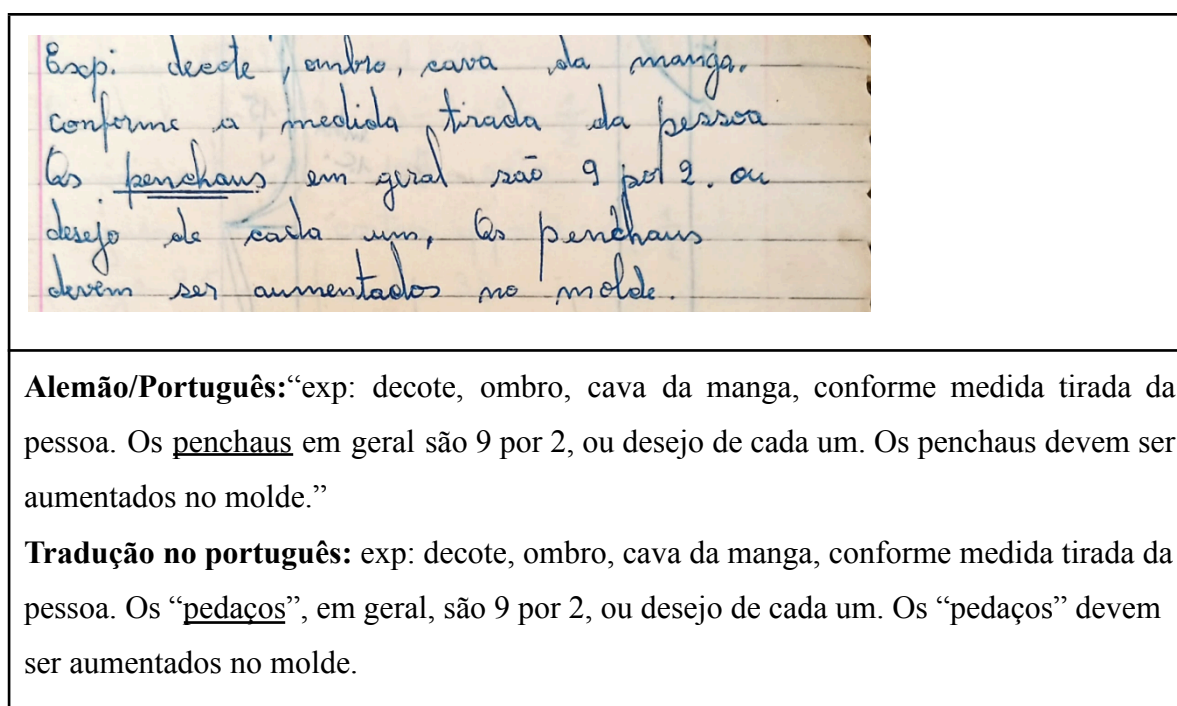 Exp: decote, ombro, cava da manga.
conforme a medida tirada da pessoa
Os penchaus em geral são 9 por 2. ou
desejo de cada um, Os penchaus
devem ser aumentados no molde.
Alemão/Português:“exp: decote, ombro, cava da manga, conforme medida tirada da
pessoa. Os penchaus em geral são 9 por 2, ou desejo de cada um. Os penchaus devem ser
aumentados no molde.”
Tradução no português: exp: decote, ombro, cava da manga, conforme medida tirada da
pessoa. Os “pedaços”, em geral, são 9 por 2, ou desejo de cada um. Os “pedaços” devem
ser aumentados no molde.